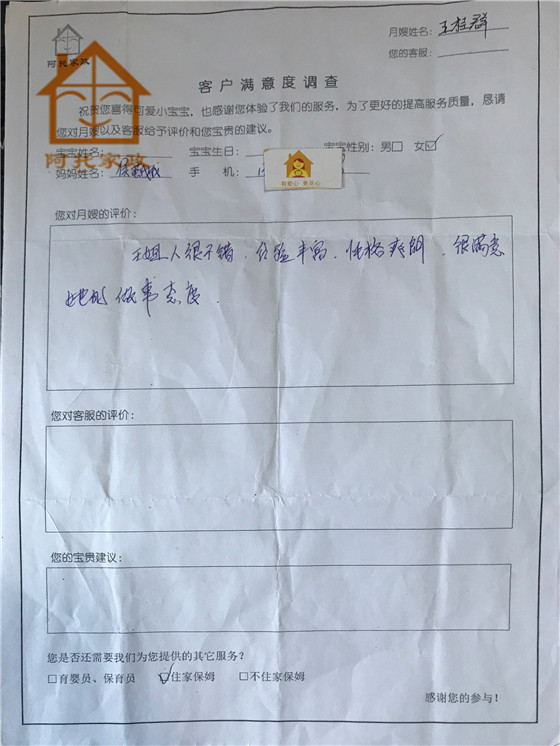 月嫂姓名：王桂群
您的客服：
阿托家政
客户满意度调查
祝贺您喜得可爱小宝宝，也感谢您体验了我们的服务，为了更好的提高服务质量，恳请
您对月嫂以及客服给予评价和您宝贵的建议。
宝宝姓名： 宝宝生日： 宝宝性别：男□ 女☑
阿托家政
妈妈姓名： 手 机：
有爱心 更放心
您对月嫂的评价：
王姐人很不错，经验丰富，性格爽朗，很满意
她的做事态度．
您对客服的评价：
您的宝贵建议：
您是否还需要我们为您提供的其它服务？
□育婴员、保育员 ☑住家保姆 □不住家保姆
感谢您的参与！